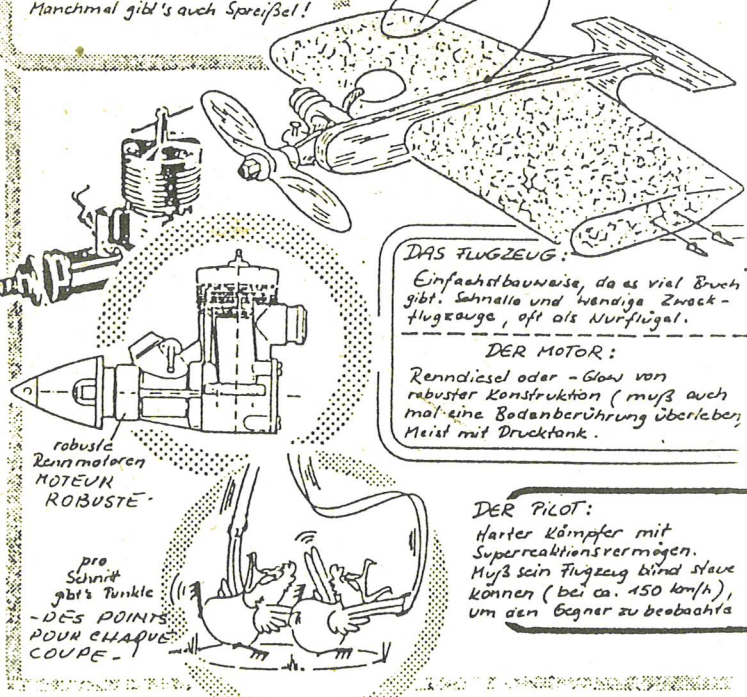 Manchmal gibt's auch Spreißel!
DAS FLUGZEUG:
Einfachstbauweise, da es viel Bruch
gibt. Schnelle und wendige Zweck-
flugzeuge, oft als Nurflügel.
DER MOTOR:
Renndiesel oder -Glow von
robuster Konstruktion (muß auch
mal eine Bodenberührung überleben,
Meist mit Drucktank.
robuste
Rennmotoren
MOTEUR
ROBUSTE-
DER PILOT:
Harter Kämpfer mit
Superreaktionsvermögen.
Muß sein Flugzeug blind steue
können (bei ca. 150 km/h),
um den Gegner zu beobachte
pro
Schnitt
gibt's Punkte
-DES POINTS
POUR CHAQUE
COUPE-